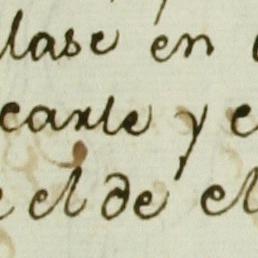 lase en
carle y e
e el de el